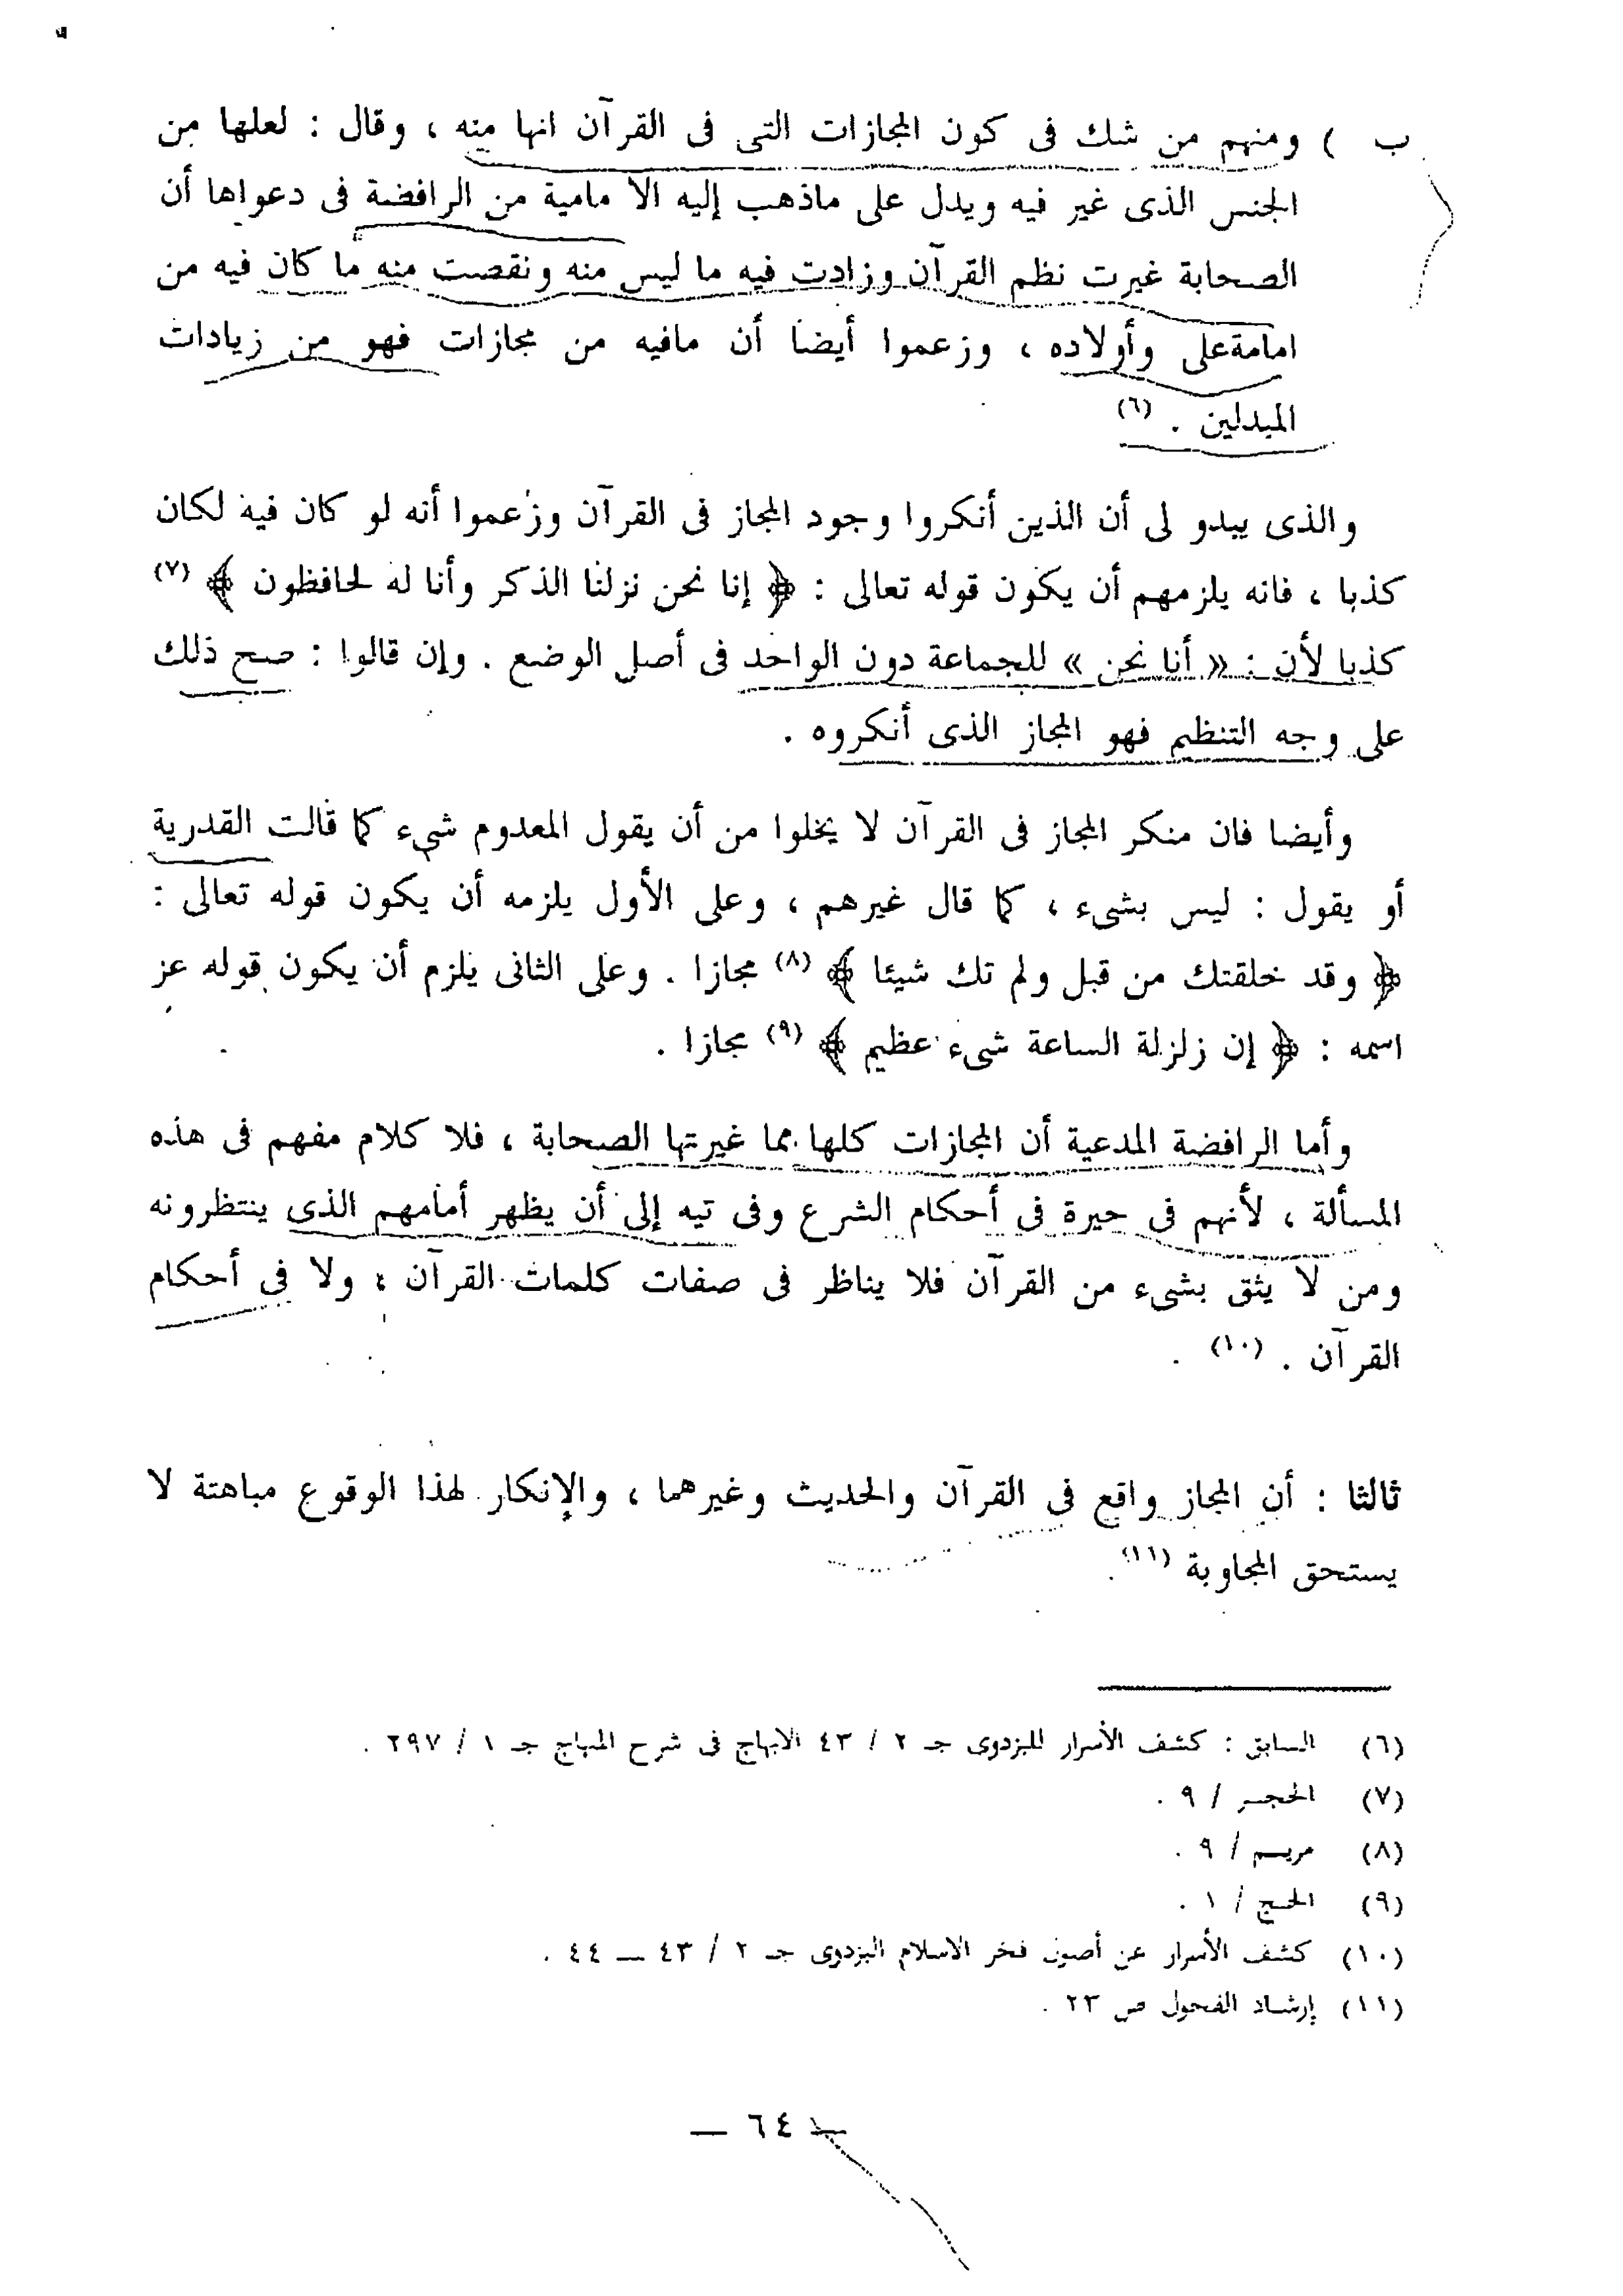 ب ) ومنهم من شك فى كون المجازات التى فى القرآن انها منه ، وقال : لعلها من
الجنس الذى غير فيه ويدل على ماذهب إليه الا مامية من الرافضة فى دعواها أن
الصحابة غيرت نظم القرآن وزادت فيه ما ليس منه ونقصت منه ما كان فيه من
امامةعلى وأولاده ، وزعموا أيضا أن مافيه من مجازات فهو من زيادات
المبدلين . (٦)
والذى يبدو لى أن الذين أنكروا وجود المجاز فى القرآن وزعموا أنه لو كان فيه لكان
كذبا ، فانه يلزمهم أن يكون قوله تعالى : ﴿ إنا نحن نزلنا الذكر وأنا له لحافظون ﴾ (٧)
كذبا لأن : « أنا نحن » للجماعة دون الواحد فى أصل الوضع . وإن قالوا : صح ذلك
على وجه التنظيم فهو المجاز الذى أنكروه .
وأيضا فان منكر المجاز فى القرآن لا يخلوا من أن يقول المعدوم شىء كما قالت القدرية
أو يقول : ليس بشىء ، كما قال غيرهم ، وعلى الأول يلزمه أن يكون قوله تعالى :
﴿ وقد خلقتك من قبل ولم تك شيئا ﴾ (٨) مجازا . وعلى الثانى يلزم أن يكون قوله عز
اسمه : ﴿ إن زلزلة الساعة شىء عظيم ﴾ (٩) مجازا .
وأما الرافضة المدعية أن المجازات كلها مما غيرتها الصحابة ، فلا كلام مفهم فى هذه
المسألة ، لأنهم فى حيرة فى أحكام الشرع وفى تيه إلى أن يظهر أمامهم الذى ينتظرونه
ومن لا يثق بشىء من القرآن فلا يناظر فى صفات كلمات القرآن ، ولا فى أحكام
القرآن . (١٠) .
ثالثا : أن المجاز واقع فى القرآن والحديث وغيرهما ، والإنكار لهذا الوقوع مباهتة لا
يستحق المجاوبة (١١) .
(٦) السابق : كشف الأسرار للبزدوى جـ ٢ / ٤٣ الابهاج فى شرح المنهاج جـ ١ / ٢٩٧ .
(٧) الحجر / ٩ .
(٨) مريم / ٩ .
(٩) الحج / ١ .
(١٠) كشف الأسرار عن أصول فخر الاسلام البزدوى جـ ٢ / ٤٣ — ٤٤ .
(١١) إرشاد الفحول ص ٢٣ .
— ٦٤ —